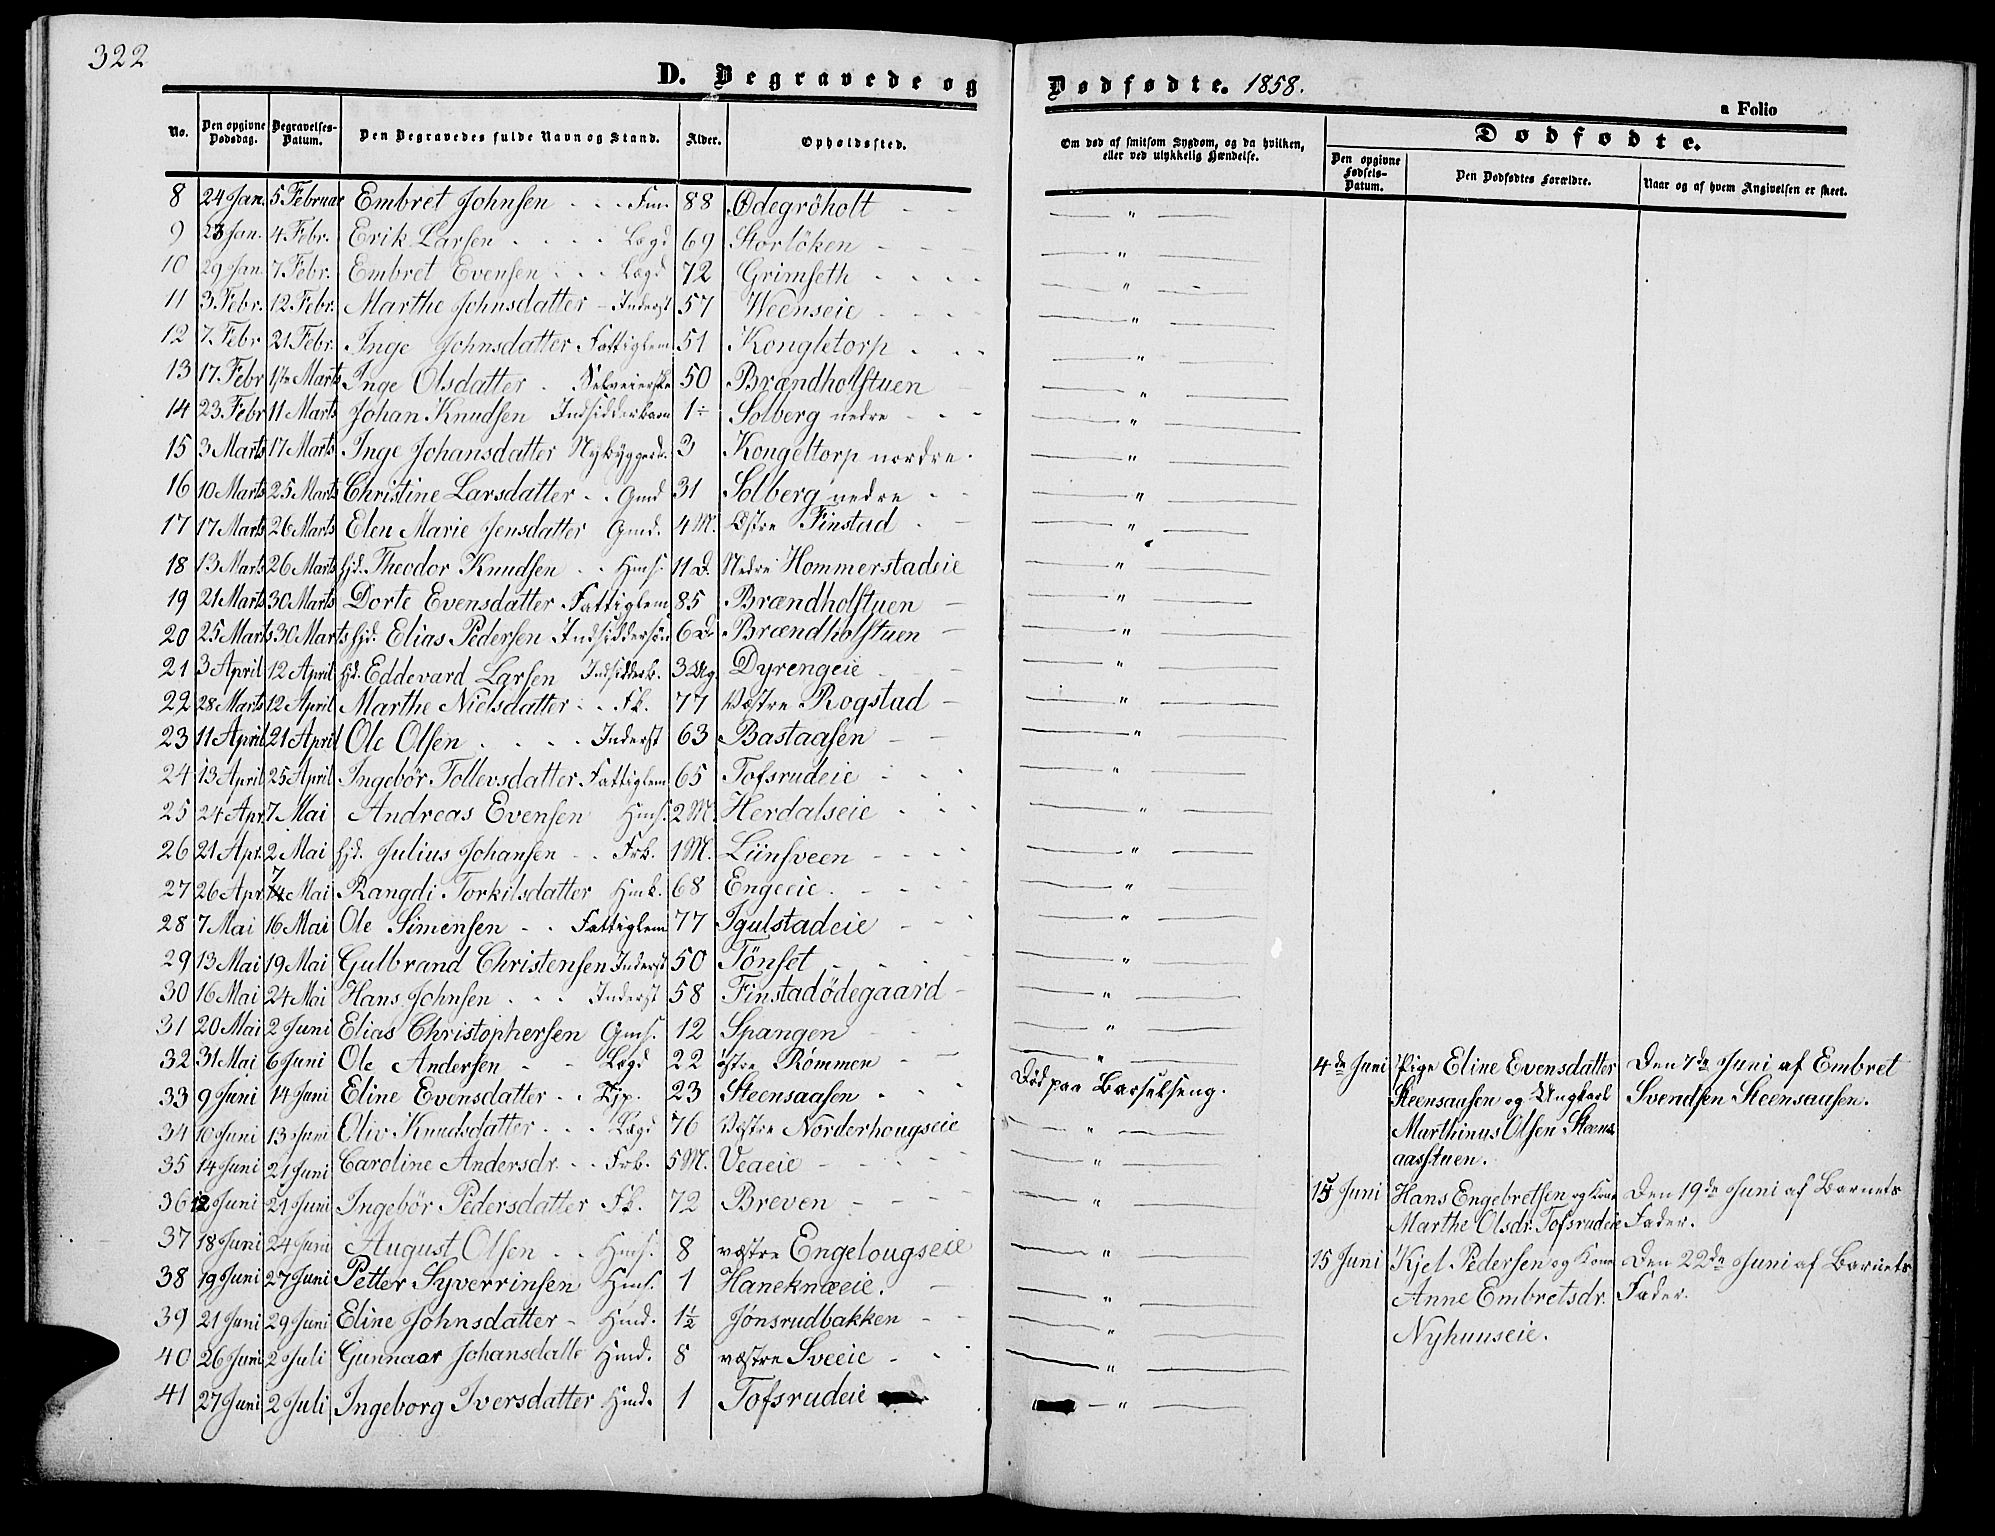 322
D. Begravede og Dødfødte. 1858.
a Folio
No. Den opgivne Dødsdag. Begravelses-Datum. Den Begravedes fulde Navn og Stand. Alder. Opholdssted. Om død af smitsom Sygdom, og da hvilken, eller ved ulykkelig Hændelse. Dødfødte.
Den opgivne Fødsels-Datum. Den Dødfødtes Forældre. Naar og af hvem Angivelsen er skeet.
8 24 Jan. 5 Februar Embret Johnsen Fm. 88 Ødegröholt "
9 23 Jan. 4 Febr. Erik Larsen Lægd 69 Storlöken "
10 29 Jan. 7 Febr. Embret Evensen Lægd 72 Grimseth "
11 3 Febr. 12 Febr. Marthe Johnsdatter Inderst 57 Weenseie "
12 7. Febr 21 Febr. Inge Johnsdatter Fattiglem 51 Kongletorp "
13 17 Febr 1ste Marts Inge Olsdatter Selveierske 50 Brændholstuen "
14 23 Febr 11 Marts Johan Knudsen Indsidderbarn 1 Solberg nedre "
15 3 Marts 17 Marts Inge Johansdatter Nybyggerd. 3 Kongeltorp nordre "
16 10 Marts 25 Marts Christine Larsdatter Gmd 31 Solberg nedre "
17 17 Marts 26 Marts Elen Marie Jensdatter Gmd. 4 M. Østre Finstad "
18 13 Marts 26 Marts hjd. Theodor Knudsen Hms. 11 D. Nedre Hommerstadeie "
19 21 Marts 30 Marts Dorte Evensdatter Fattiglem 85 Brændholstuen "
20 25 Marts 30 Marts hjd. Elias Pedersen Indsiddersön 6 D. Brændholstuen "
21 3 April 12 April hjd. Eddevard Larsen Indsidderb. 3 Ug. Dyrengeie "
22 28 Marts 12 April Marthe Nielsdatter Fk. 77 Vestre Rogstad "
23 11 April 21 April Ole Olsen Inderst 63 Bastaasen "
24 13 April 25 April Ingebör Tollevsdatter Fattiglem 65 Tofsrudeie "
25 24 Apr. 7 Mai Andreas Evensen Hms. 2 M. Herdalseie "
26 21 Apr. 2 Mai hjd. Julius Johansen Frb. 1 M. Liinsveen "
27 26 Apr 7 Mai Rangdi Torkilsdatter Hmk. 68 Engeeie "
28 7 Mai 16 Mai Ole Simensen Fattiglem 77 Igulstadeie "
29 13 Mai 19 Mai Gulbrand Christensen Inderst 50 Tönset "
30 16 Mai 24 Mai Hans Johnsen Inderst 58 Finstadödegaard "
31 20 Mai 2 Juni Elias Christophersen Gms. 12 Spangen "
32 31 Mai 6 Juni Ole Andersen Lægd 22 østre Rømmen "
33 9 Juni 14 Juni Eline Evensdatter Pige. 23 Steensaasen Död paa Barselseng.
34 10 Juni 13 Juni Oliv Knudsdatter Lægd 76 Vestre Norderhougseie "
35 14 Juni 21 Juni Caroline Andersdr. Frb. 5 M. Veaeie "
36 12 Juni 21 Juni Ingebör Pedersdatter Fk. 72 Breven "
37 18 Juni 24 Juni August Olsen Hms. 8 vestre Engelougseie "
38 19 Juni 27 Juni Petter Syverrinsen Hms. 1 Haneknæeie. "
39 21 Juni 29 Juni Eline Johnsdatter Hmd. 1½ Jönsrudbakken "
40 26 Juni 2 Juli Gunnaar Johansdatte Hmd. 8 vestre Sveeie "
41 27 Juni 2 Juli Ingeborg Iversdatter Hmd. 1 Tofsrudeie "
4de Juni Pige Eline Evensdatter Den 7de Juni af Embret
Steensaasen og Ungkarl Svendsen Steensaasen.
Marthinus Olsen Steens
aasstuen.
15 Juni Hans Engebretsen og Kone Den 19de Juni af Barnets
Marthe Olsdr. Tofsrudeie Fader.
15 Juni Kjel Pedersen og Kone Den 22de Juni af Barnets
Anne Embretsdr. Fader.
Nyhuuseie.